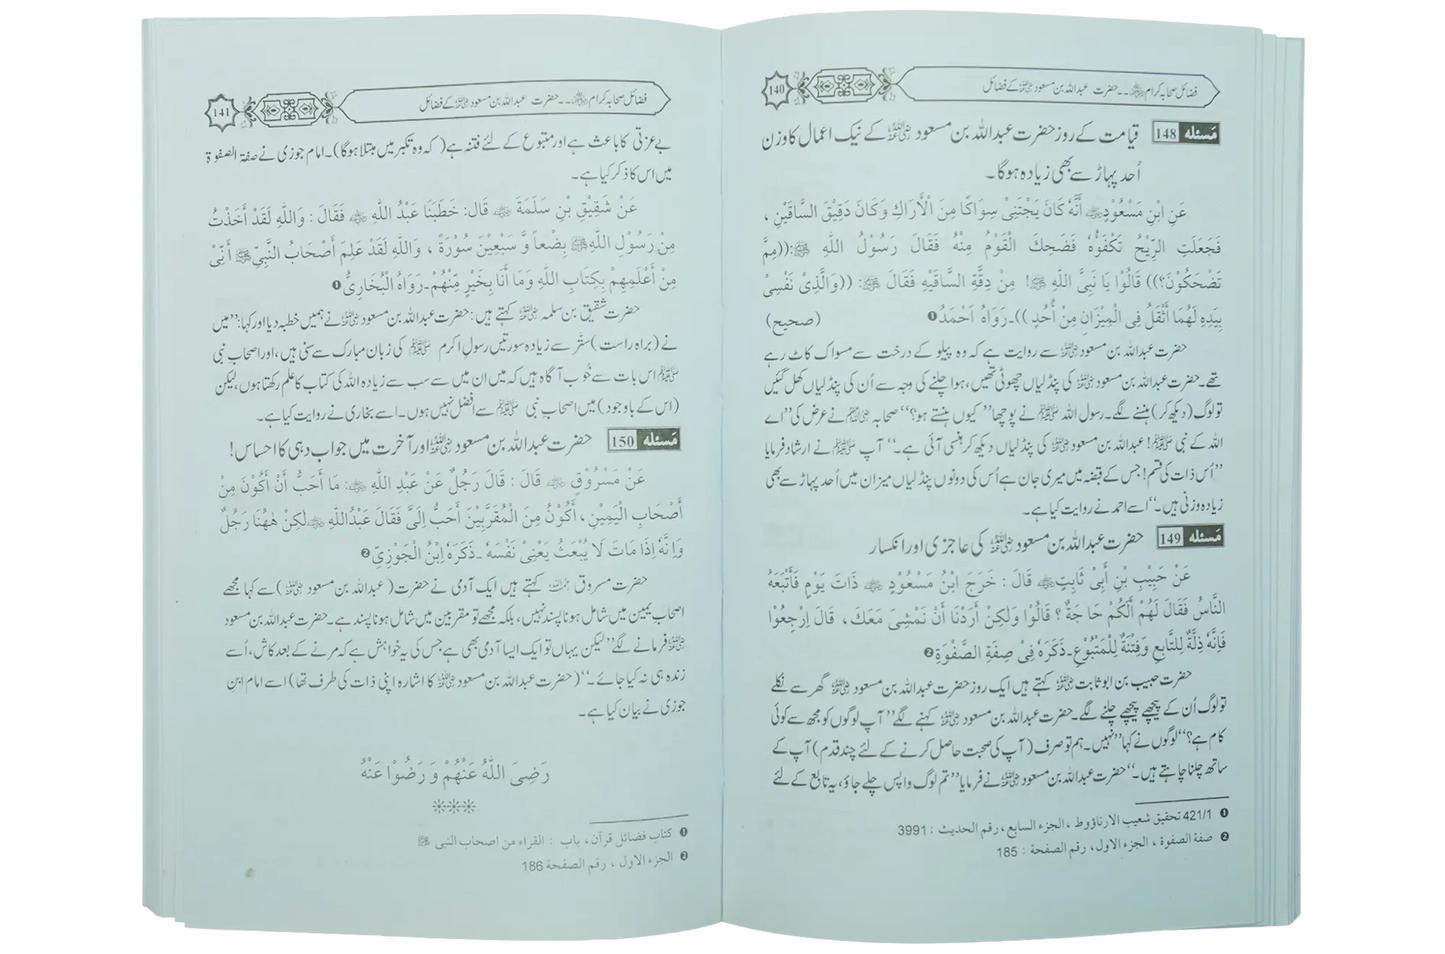 فضائل صحابہ کرام ؓ۔۔۔ حضرت عبداللہ بن مسعود ؓ کے فضائل
140
مسئلہ 148 قیامت کے روز حضرت عبداللہ بن مسعود ؓ کے نیک اعمال کا وزن
اُحد پہاڑ سے بھی زیادہ ہوگا۔
عَنِ ابْنِ مَسْعُوْدٍ ؓ أَنَّهُ كَانَ يَجْتَنِيْ سِوَاكًا مِنَ الْأَرَاكِ وَكَانَ دَقِيْقَ السَّاقَيْنِ ،
فَجَعَلَتِ الرِّيْحُ تَكْفَؤُهُ فَضَحِكَ الْقَوْمُ مِنْهُ فَقَالَ رَسُوْلُ اللّٰهِ ﷺ :((مِمَّ
تَضْحَكُوْنَ؟)) قَالُوْا يَا نَبِيَّ اللّٰهِ ﷺ! مِنْ دِقَّةِ السَّاقَيْهِ فَقَالَ ﷺ: ((وَالَّذِيْ نَفْسِيْ
بِيَدِهِ لَهُمَا أَثْقَلُ فِي الْمِيْزَانِ مِنْ أُحُدٍ ))۔رَوَاهُ اَحْمَدُ❶ (صحیح)
حضرت عبداللہ بن مسعود ؓ سے روایت ہے کہ وہ پیلو کے درخت سے مسواک کاٹ رہے
تھے۔حضرت عبداللہ بن مسعود ؓ کی پنڈلیاں چھوٹی تھیں، ہوا چلنے کی وجہ سے اُن کی پنڈلیاں کھل گئیں
تو لوگ (دیکھ کر) ہنسنے لگے۔ رسول اللہ ﷺ نے پوچھا ”کیوں ہنستے ہو؟“ صحابہ ؓ نے عرض کی ”اے
اللہ کے نبی ﷺ! عبداللہ بن مسعود ؓ کی پنڈلیاں دیکھ کر ہنسی آئی ہے۔“ آپ ﷺ نے ارشاد فرمایا
”اُس ذات کی قسم! جس کے قبضہ میں میری جان ہے اُس کی دونوں پنڈلیاں میزان میں اُحد پہاڑ سے بھی
زیادہ وزنی ہیں۔“اسے احمد نے روایت کیا ہے۔
مسئلہ 149 حضرت عبداللہ بن مسعود ؓ کی عاجزی اور انکسار
عَنْ حَبِيْبِ بْنِ أَبِيْ ثَابِتٍ ؓ قَالَ : خَرَجَ ابْنُ مَسْعُوْدٍ ؓ ذَاتَ يَوْمٍ فَأَتْبَعَهُ
النَّاسُ فَقَالَ لَهُمْ أَلَكُمْ حَاجَةٌ ؟ قَالُوْا وَلٰكِنْ أَرَدْنَا أَنْ نَمْشِيَ مَعَكَ ، قَالَ اِرْجِعُوْا
فَاِنَّهُ ذِلَّةٌ لِلتَّابِعِ وَفِتْنَةٌ لِلْمَتْبُوْعِ۔ذَكَرَهُ فِيْ صِفَةِ الصَّفْوَةِ❷
حضرت حبیب بن ابو ثابت ؓ کہتے ہیں ایک روز حضرت عبداللہ بن مسعود ؓ گھر سے نکلے
تو لوگ اُن کے پیچھے پیچھے چلنے لگے۔ حضرت عبداللہ بن مسعود ؓ کہنے لگے ”آپ لوگوں کو مجھ سے کوئی
کام ہے؟“ لوگوں نے کہا ”نہیں۔ ہم تو صرف (آپ کی صحبت حاصل کرنے کے لئے چند قدم) آپ کے
ساتھ چلنا چاہتے ہیں۔“ حضرت عبداللہ بن مسعود ؓ نے فرمایا ”تم لوگ واپس چلے جاؤ، یہ تابع کے لئے
❶ 421/1 تحقیق شعیب الارناؤوط ، الجزء السابع ، رقم الحدیث : 3991
❷ صفة الصفوة ، الجزء الاول، رقم الصفحة : 185
فضائل صحابہ کرام ؓ۔۔۔ حضرت عبداللہ بن مسعود ؓ کے فضائل
141
بے عزتی کا باعث ہے اور متبوع کے لئے فتنہ ہے (کہ وہ تکبر میں مبتلا ہوگا)۔ امام جوزی نے صفة الصفوة
میں اس کا ذکر کیا ہے۔
عَنْ شَقِيْقِ بْنِ سَلَمَةَ ؓ قَالَ: خَطَبَنَا عَبْدُ اللّٰهِ ؓ فَقَالَ : وَاللّٰهِ لَقَدْ أَخَذْتُ
مِنْ رَسُوْلِ اللّٰهِ ﷺ بِضْعاً وَّ سَبْعِيْنَ سُوْرَةً ، وَاللّٰهِ لَقَدْ عَلِمَ أَصْحَابُ النَّبِيِّ ﷺ أَنِّيْ
مِنْ أَعْلَمِهِمْ بِكِتَابِ اللّٰهِ وَمَا أَنَا بِخَيْرٍ مِّنْهُمْ۔رَوَاهُ الْبُخَارِيُّ❶
حضرت شقیق بن سلمہ ؓ کہتے ہیں : حضرت عبداللہ بن مسعود ؓ نے ہمیں خطبہ دیا اور کہا: ”میں
نے (براہ راست) ستّر سے زیادہ سورتیں رسولِ اکرم ﷺ کی زبان مبارک سے سنی ہیں، اور اصحاب نبی
ﷺ اس بات سے خُوب آگاہ ہیں کہ میں ان میں سے سب سے زیادہ اللہ کی کتاب کا علم رکھتا ہوں، لیکن
(اس کے باوجود) میں اصحاب نبی ﷺ سے افضل نہیں ہوں۔ اسے بخاری نے روایت کیا ہے۔
مسئلہ 150 حضرت عبداللہ بن مسعود ؓ اور آخرت میں جواب دہی کا احساس!
عَنْ مَسْرُوْقٍ ؓ قَالَ : قَالَ رَجُلٌ عَنْ عَبْدِ اللّٰهِ ؓ: مَا أُحِبُّ أَنْ أَكُوْنَ مِنْ
أَصْحَابِ الْيَمِيْنِ ، أَكُوْنُ مِنَ الْمُقَرَّبِيْنَ أَحَبُّ اِلَيَّ فَقَالَ عَبْدُاللّٰهِ ؓ لٰكِنْ هٰهُنَا رَجُلٌ
وَاِنَّهُ اِذَا مَاتَ لَا يُبْعَثُ يَعْنِيْ نَفْسَهُ ۔ذَكَرَهُ اِبْنُ الْجَوْزِيِّ❷
حضرت مسروق ؒ کہتے ہیں ایک آدمی نے حضرت (عبداللہ بن مسعود ؓ) سے کہا مجھے
اصحاب یمین میں شامل ہونا پسند نہیں، بلکہ مجھے تو مقربین میں شامل ہونا پسند ہے۔ حضرت عبداللہ بن مسعود
ؓ فرمانے لگے ”لیکن یہاں تو ایک ایسا آدمی بھی ہے جس کی یہ خواہش ہے کہ مرنے کے بعد کاش، اُسے
زندہ ہی نہ کیا جائے۔“ (حضرت عبداللہ بن مسعود ؓ کا اشارہ اپنی ذات کی طرف تھا) اسے امام ابنِ
جوزی نے بیان کیا ہے۔
رَضِىَ اللّٰهُ عَنْهُمْ وَ رَضُوْا عَنْهُ
❶ کتاب فضائل قرآن، باب : القراء من اصحاب النبی ﷺ
❷ الجزء الاول ، رقم الصفحة 186